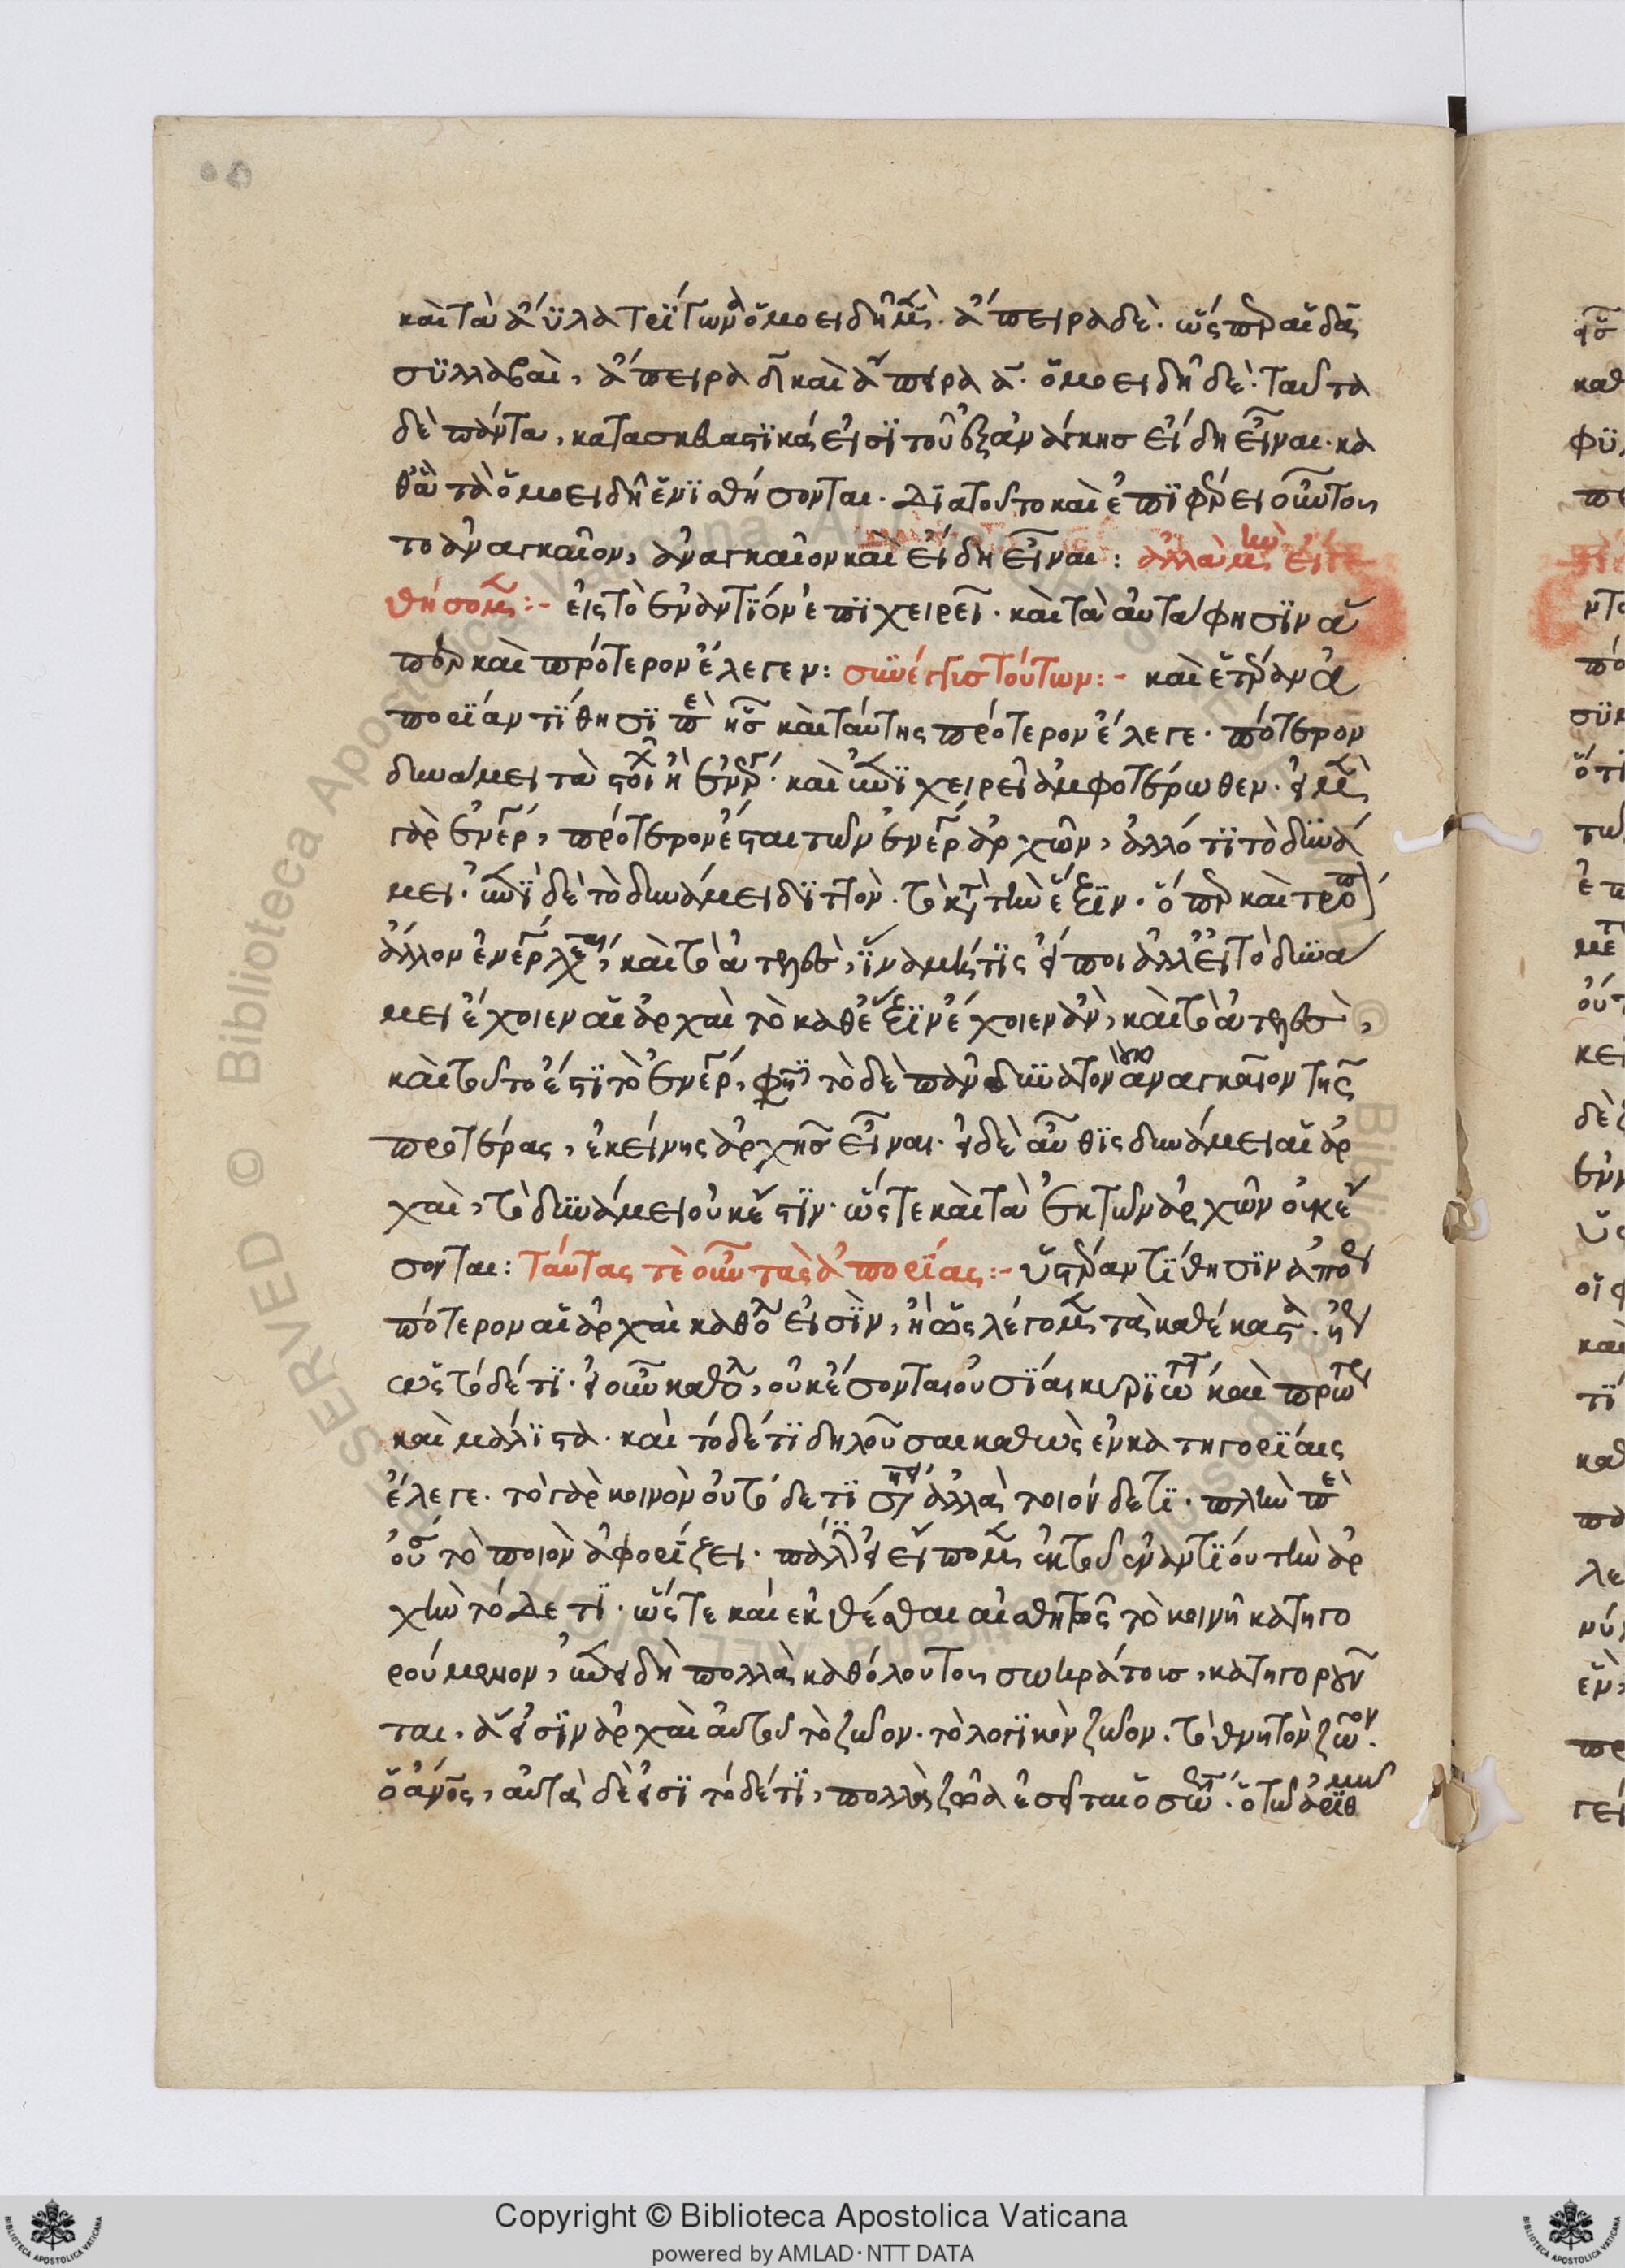 καὶ τὰ ἄϋλα τρίτων ὁμοειδῆ μὲν. ἄπειρα δὲ. ὥσπερ αἱ δα
συλλαβαὶ, ἄπειρα καὶ ἄπειρα ὁμοειδῆ δὲ. ταῦτα
δὲ πάντα, κατασκευαστικά εἰσὶ τοῦ ἐξ ἀνάγκης εἴδη εἶναι. κα
θὰ τὰ ὁμοειδῆ ἑνισθήσονται. Διατοῦτο καὶ ἐπιφέρει οὕτως
τὸ ἀναγκαῖον, ἀναγκαῖον καὶ εἴδη εἶναι: ἀλλὰ μὴν εἴγε
θήσομεν:- εἰς τὸ ἐναντίον ἐπιχειρεῖ. καὶ τὰ αὐτὰ φησὶν ἃ
περ καὶ πρότερον ἔλεγεν: σύνεγγυς τούτων:- καὶ ἑτέραν ἀ
πορίαν τίθησι περὶ ἧς καὶ ταύτης πρότερον ἔλεγε. πότερον
δυνάμει τὰ στοιχ ἢ ἐνερ. καὶ ἐπιχειρεῖ ἀμφοτέρωθεν. εἰ μὲν
γὰρ ἐνερ, πρότερον ἔσται τῶν ἐνερ ἀρχῶν, ἄλλό τι τὸ δυνά
μει. ἐπὶ δὲ τὸ δυνάμει διττὸν. τὸ κατὰ τὴν ἕξιν. ὅπερ καὶ τρόπ
ἄλλον ἐνερ λέγεται, καὶ τὸ ἀτελὲς, ἵνα μή τις εἴποι ἀλλ' εἰ τὸ δυνά
μει ἔχοιεν αἱ ἀρχαὶ τὸ καθ' ἕξιν ἔχοιεν ἂν, καὶ τὸ ἀτελὲς,
καὶ τοῦτο ἐστὶ τὸ ἐνερ, φησὶ τὸ δὲ πᾶν δυνατὸν ἀναγκαῖον τῆς
προτέρας, ἐκείνης ἀρχῆς εἶναι. εἰ δὲ αὖθις δυνάμει αἱ ἀρ
χαὶ, τὸ δυνάμει οὐκ ἔστιν. ὥστε καὶ τὰ ἐκ τῶν ἀρχῶν οὐκ ἔ
σονται: Ταύτας τὲ οὖν τὰς ἀπορίας:- ὕστερ ἀντιτίθησιν ἀπο
πότερον αἱ ἀρχαὶ καθό εἰσὶν, ἢ ὡς λέγομεν τὰς καθέκαστα. ἤ
ὡς τόδέ τι. εἰ οὖν καθό, οὐκ ἔσονται οὐσίαι κυρίω καὶ πρώ
καὶ μάλιστα. καὶ τόδέ τι δηλοῦσαι καθὼς ἐν κατηγορίαις
ἔλεγε. τὸ γὰρ κοινὸν οὐ τόδε τι ση ἀλλὰ τοιόνδε τι. πλὴν περὶ
οὐ τὸ ποιὸν ἀφορίζει. πάλιν εἰ εἴπομεν ἐκ τοῦ ἐναντίου τὴν ἀρ
χὴν τόδε τι. ὥστε καὶ ἐκθέσθαι αἰσθητῶς τὸ κοινῇ κατηγο
ρούμενον, ἐπεὶ δὴ πολλὰ καθόλου τοῖς σωκράτοις, κατηγοροῦν
ται, ἃ εἰσὶν ἀρχαὶ αὐτοῦ τὸ ζῶον. τὸ λογικὸν ζῶον. τὸ θνητὸν ζῶον.
ὁ ἄνος, αὐτὰ δὲ εἰσὶ τόδέ τι, πολλὰ ζῶα ἔσεται ὁ σω. ὁ τῶ ἀριθμῶ